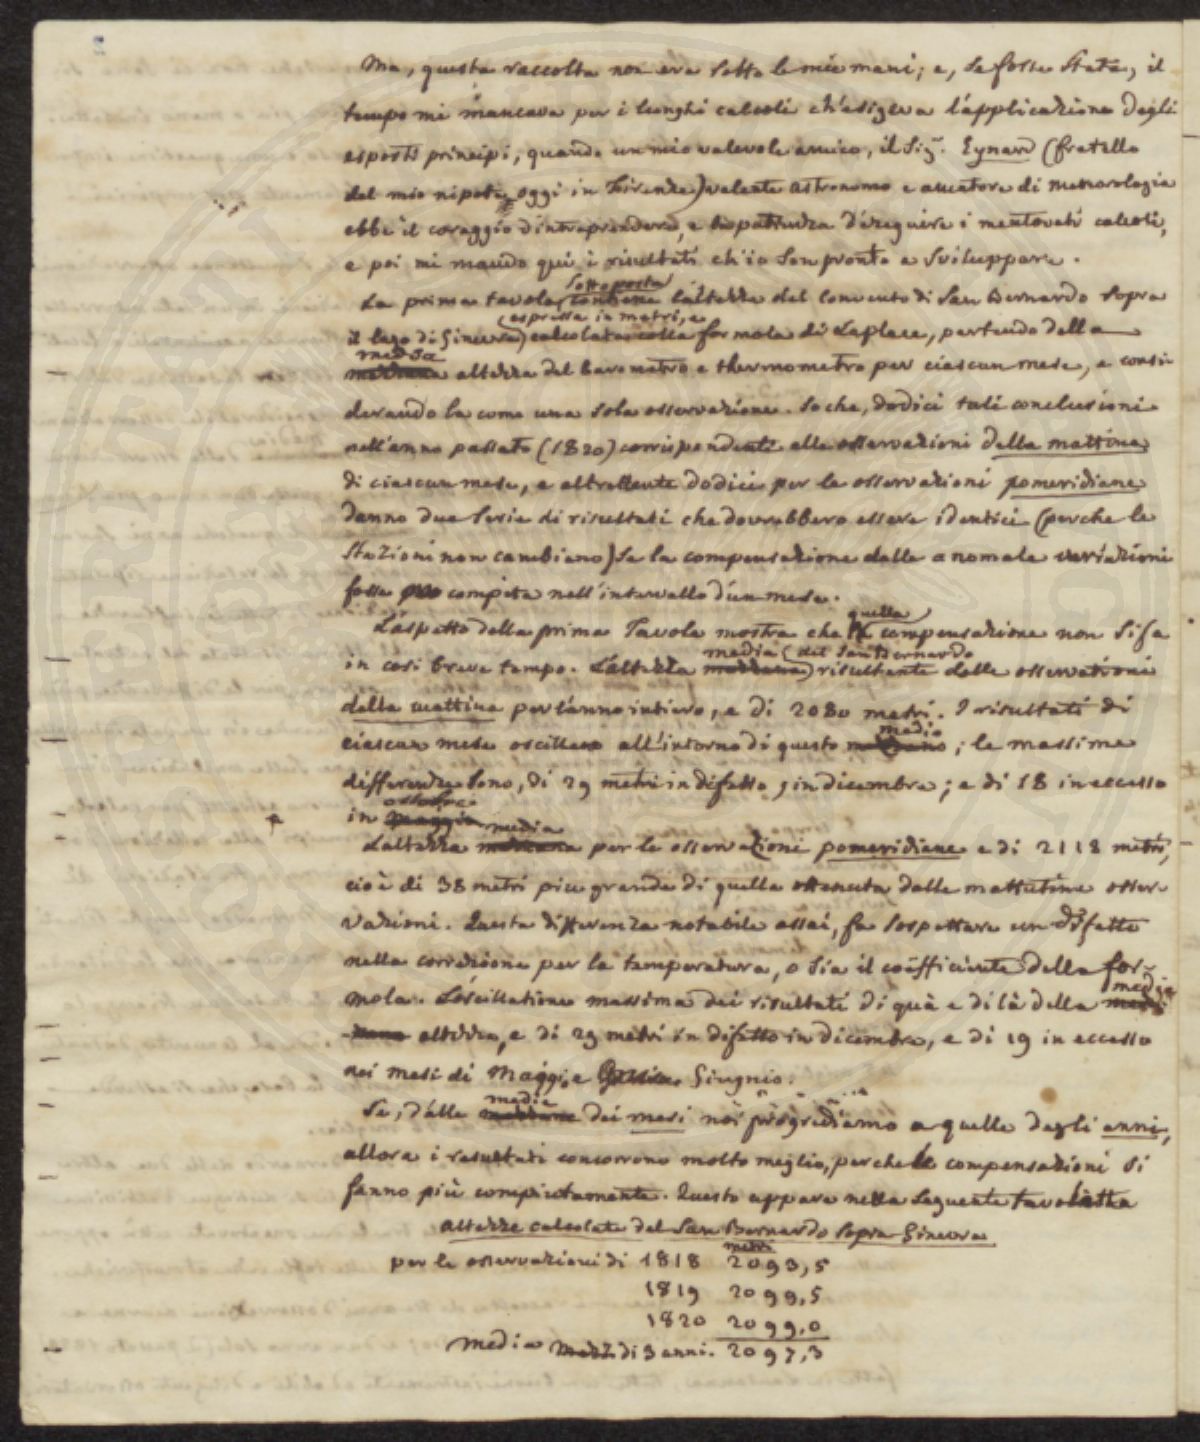 2
Ma, questa raccolta non era sotto le mie mani; e, se fosse stata, il
tempo mi mancava per i lunghi calcoli ch'esigeva l'applicazione degli
esposti principi, quando un mio valevole amico, il Sigr. Eynard (fratello
del mio nipote, oggi in Firenze) valente astronomo e amatore di meteorologia
ebbe il coraggio d'intraprendere, e la pazienza d'eseguire i mentovati calcoli,
e poi mi mandò qui i risultati ch'io son pronto a sviluppare.
sottoposta
La prima tavola contiene l'altezza del Convento di San Bernardo sopra
espressa in metri, e
il lago di Ginevra calcolata colla formola di Laplace, partendo della
media
mezzana altezza del barometro e thermometro per ciascun mese, e consi-
derandola come una sola osservazione. So che, dodici tali conclusioni
nell'anno passato (1820) corrispondenti alle osservazioni della mattina
di ciascun mese, e altrettante dodici per le osservazioni pomeridiane
danno due serie di risultati che dovrebbero essere identici (perche le
stazioni non cambiano) se la compensazione delle anomale variazioni
fosse compita nell'intervallo d'un mese.
quella
L'aspetto della prima Tavola mostra che la compensazione non si fa
media del San Bernardo
in così breve tempo. L'altezza mezzana risultante delle osservazioni
della mattina per l'anno intiero, e di 2080 metri. I risultati di
medio
ciascun mese oscillano all'intorno di questo mezzano; le massime
differenze sono, di 29 metri in difetto, in dicembre; e di 18 in eccesso
ottobre
in maggio
media
L'altezza mezzana per le osservazioni pomeridiane e di 2118 metri,
cioè di 38 metri piu grande di quella ottenuta dalle mattutine osser-
vazioni. Questa differenza notabile assai, fa sospettare un difetto
nella correzione per la temperatura, o sia il coëfficiente della for-
media
mola. L'oscillazione massima dei risultati di quà e di là della mez-
zana altezza, e di 29 metri in difetto in dicembre, e di 19 in eccesso
nei mesi di Maggio, e Giugnio.
medie
Se, dalle mezzane dei mesi noi progrediamo a quelle degli anni,
allora i resultati concorrono molto meglio, perche le compensazioni si
fanno più compiutamente. Questo appare nella seguente tavoletta
altezze calcolate del San Bernardo sopra Ginevra
metri
per le osservazioni di 1818 2093,5
1819 2099,5
1820 2099,0
media di 3 anni. 2097,3